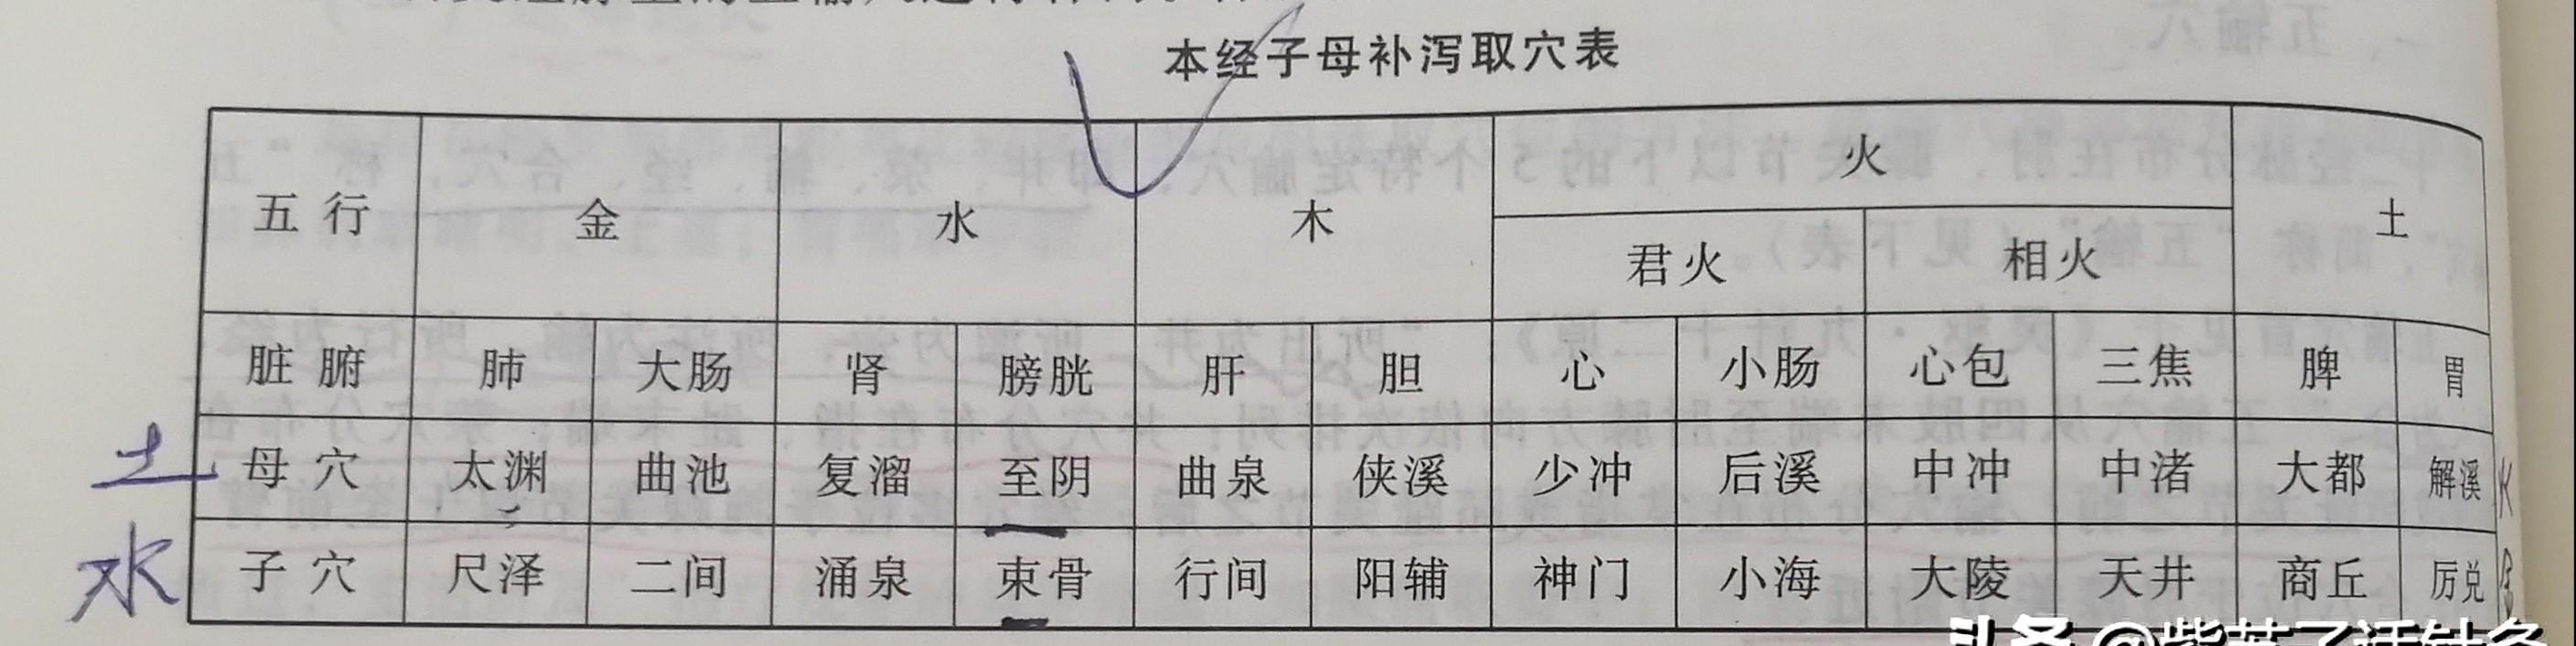 本经子母补泻取穴表
五行 金 水 木 火 土
君火 相火
脏腑 肺 大肠 肾 膀胱 肝 胆 心 小肠 心包 三焦 脾 胃
土 母穴 太渊 曲池 复溜 至阴 曲泉 侠溪 少冲 后溪 中冲 中渚 大都 解溪 火
水 子穴 尺泽 二间 涌泉 束骨 行间 阳辅 神门 小海 大陵 天井 商丘 厉兑 金